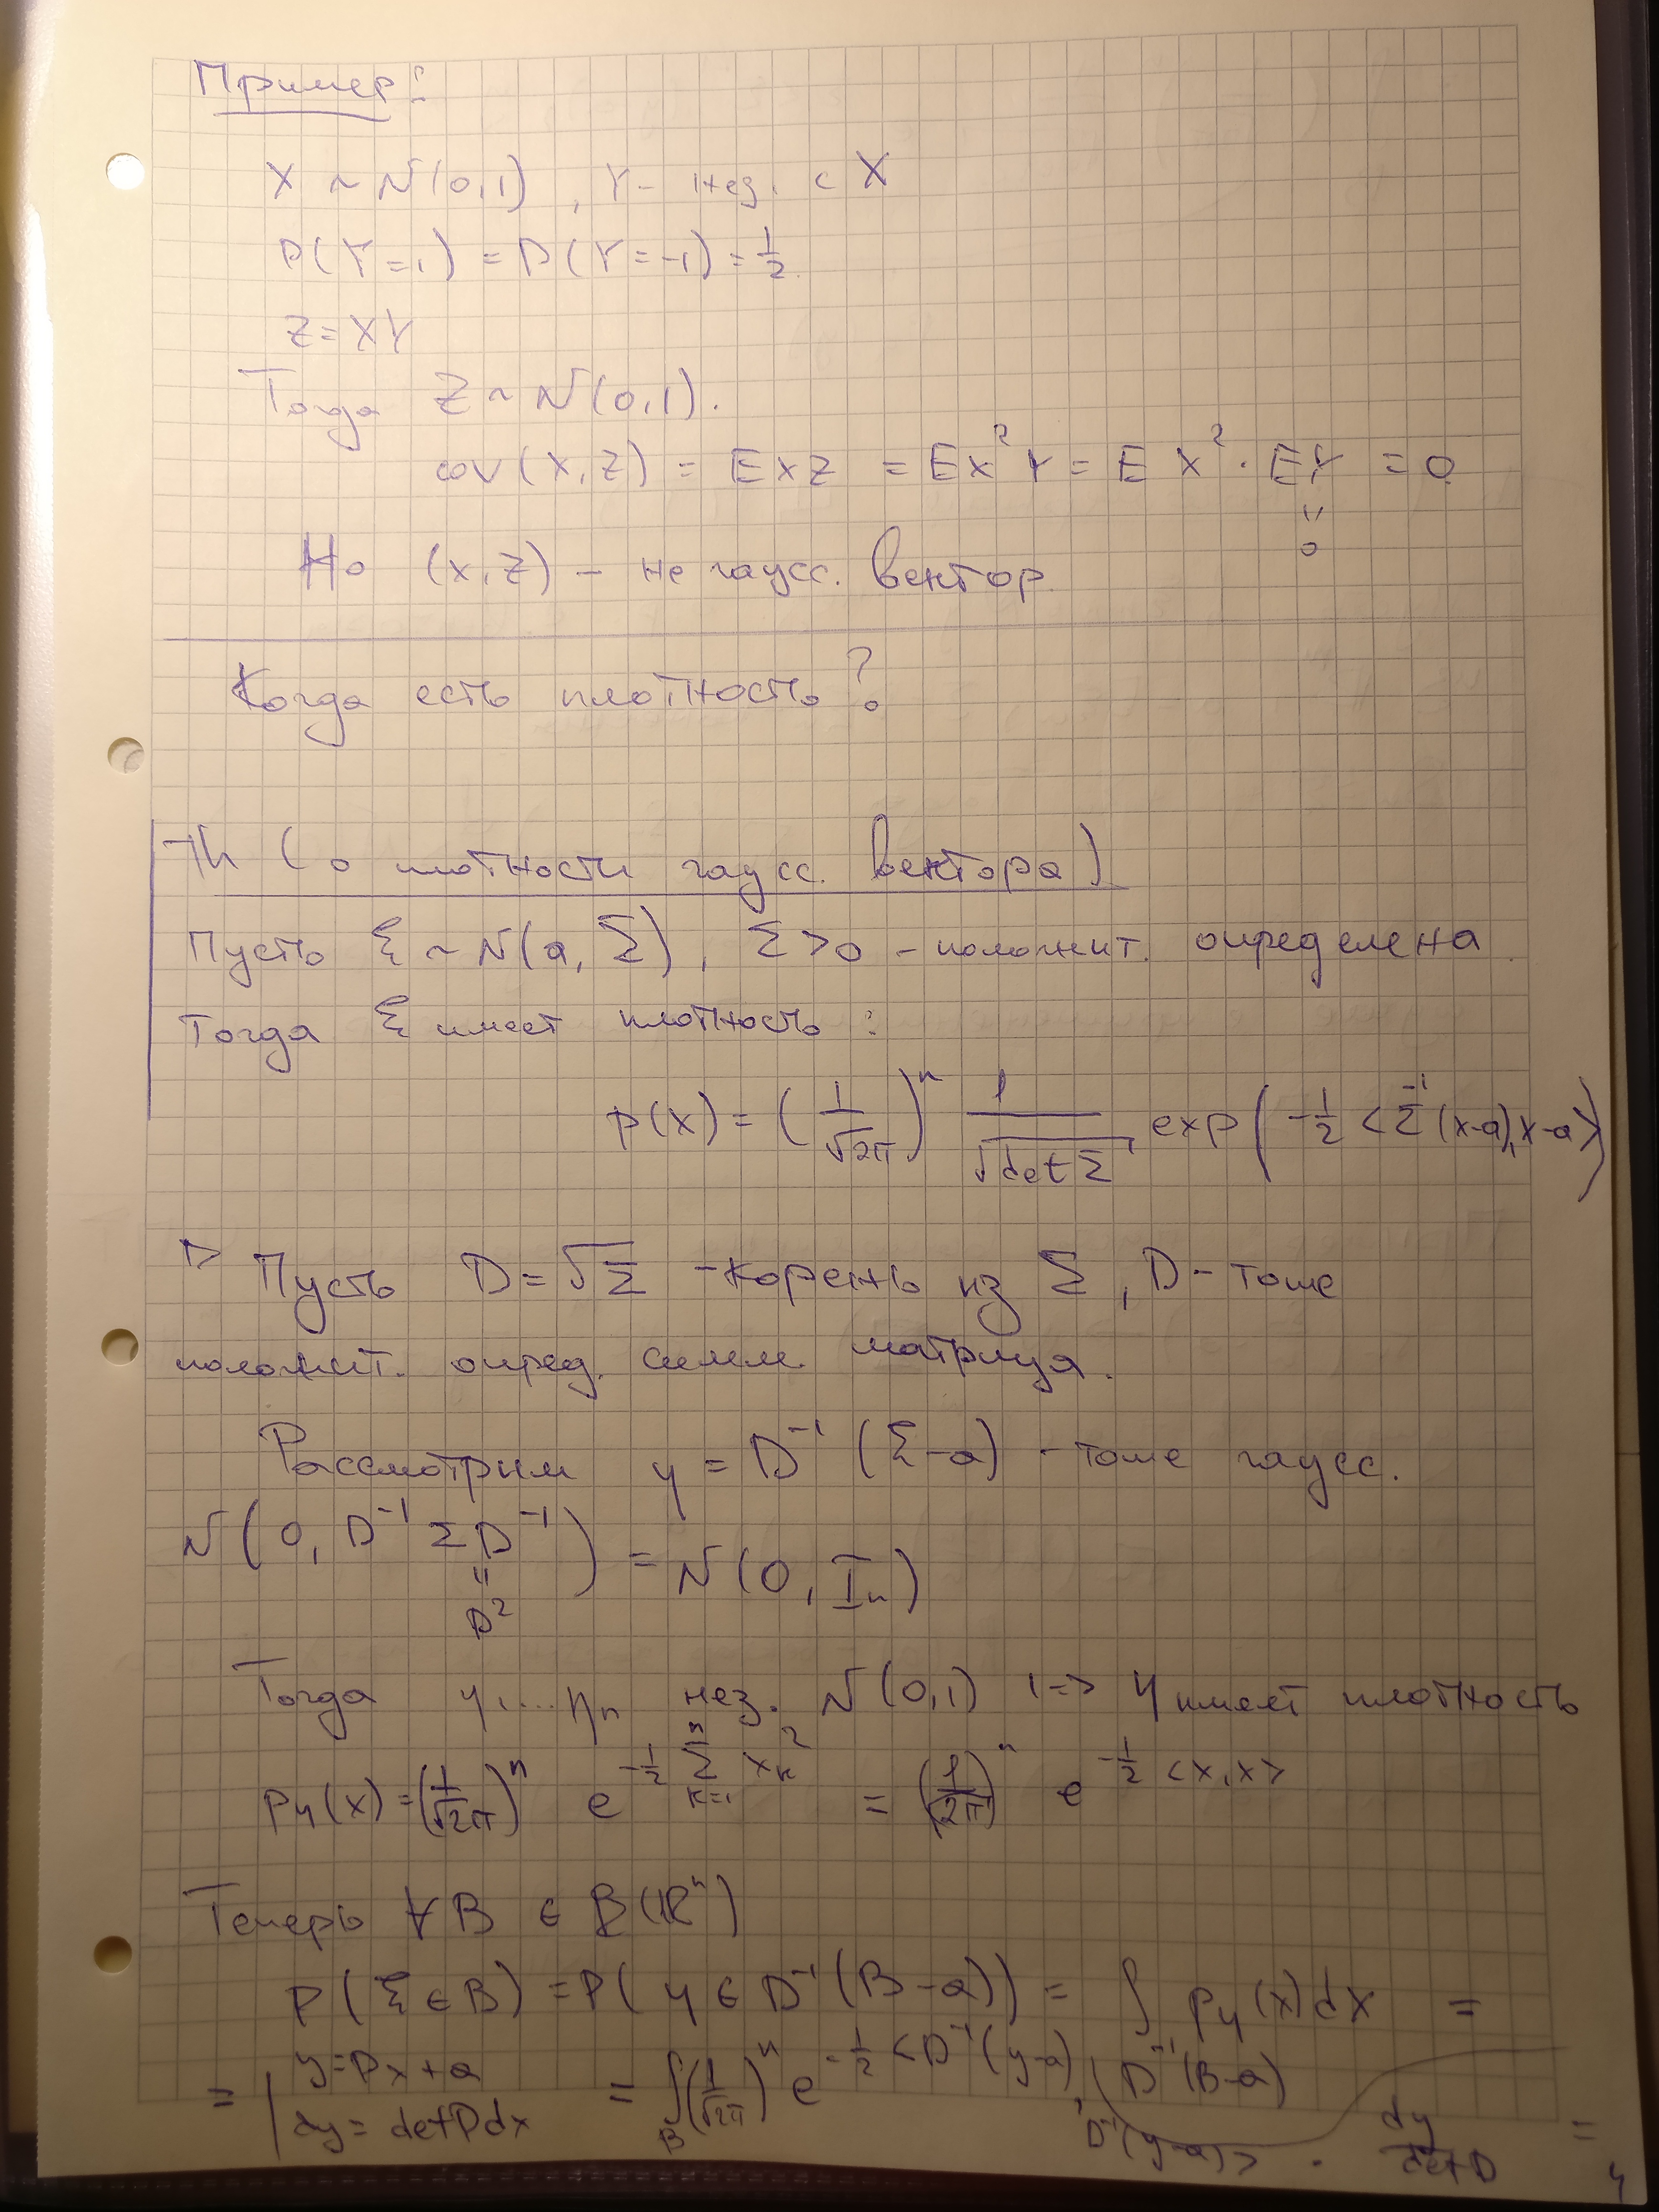 Пример:
X ~ N(0,1), Y - нез. с X
P(Y=1) = P(Y=-1) = 1/2
Z = XY
Тогда Z ~ N(0,1).
cov(X,Z) = EXZ = EX²Y = EX² · EY = 0
"
0
Но (X,Z) - не гаусс. вектор.
Когда есть плотность?
Th (о плотности гаусс. вектора)
Пусть ξ ~ N(a, Σ), Σ>0 - положит. определена.
Тогда ξ имеет плотность:
p(x) = (1/√2π)ⁿ 1/√det Σ exp(-1/2 <Σ⁻¹(x-a), x-a>)
▷ Пусть D = √Σ - корень из Σ, D - тоже
положит. опред. симм. матрица.
Рассмотрим η = D⁻¹(ξ-a) - тоже гаусс.
N(0, D⁻¹ΣD⁻¹) = N(0, Iₙ)
"
D²
Тогда η₁...ηₙ нез. N(0,1) => η имеет плотность
pη(x) = (1/√2π)ⁿ e^{-1/2 Σ_{k=1}^{n} x_k²} = (1/√2π)ⁿ e^{-1/2 <x,x>}
Теперь ∀B ∈ B(ℝⁿ)
P(ξ∈B) = P(η ∈ D⁻¹(B-a)) = ∫_{D⁻¹(B-a)} pη(x)dx =
= | y = Dx + a
dy = det D dx
= ∫_B (1/√2π)ⁿ e^{-1/2 <D⁻¹(y-a), D⁻¹(y-a)>} · dy/det D =
4